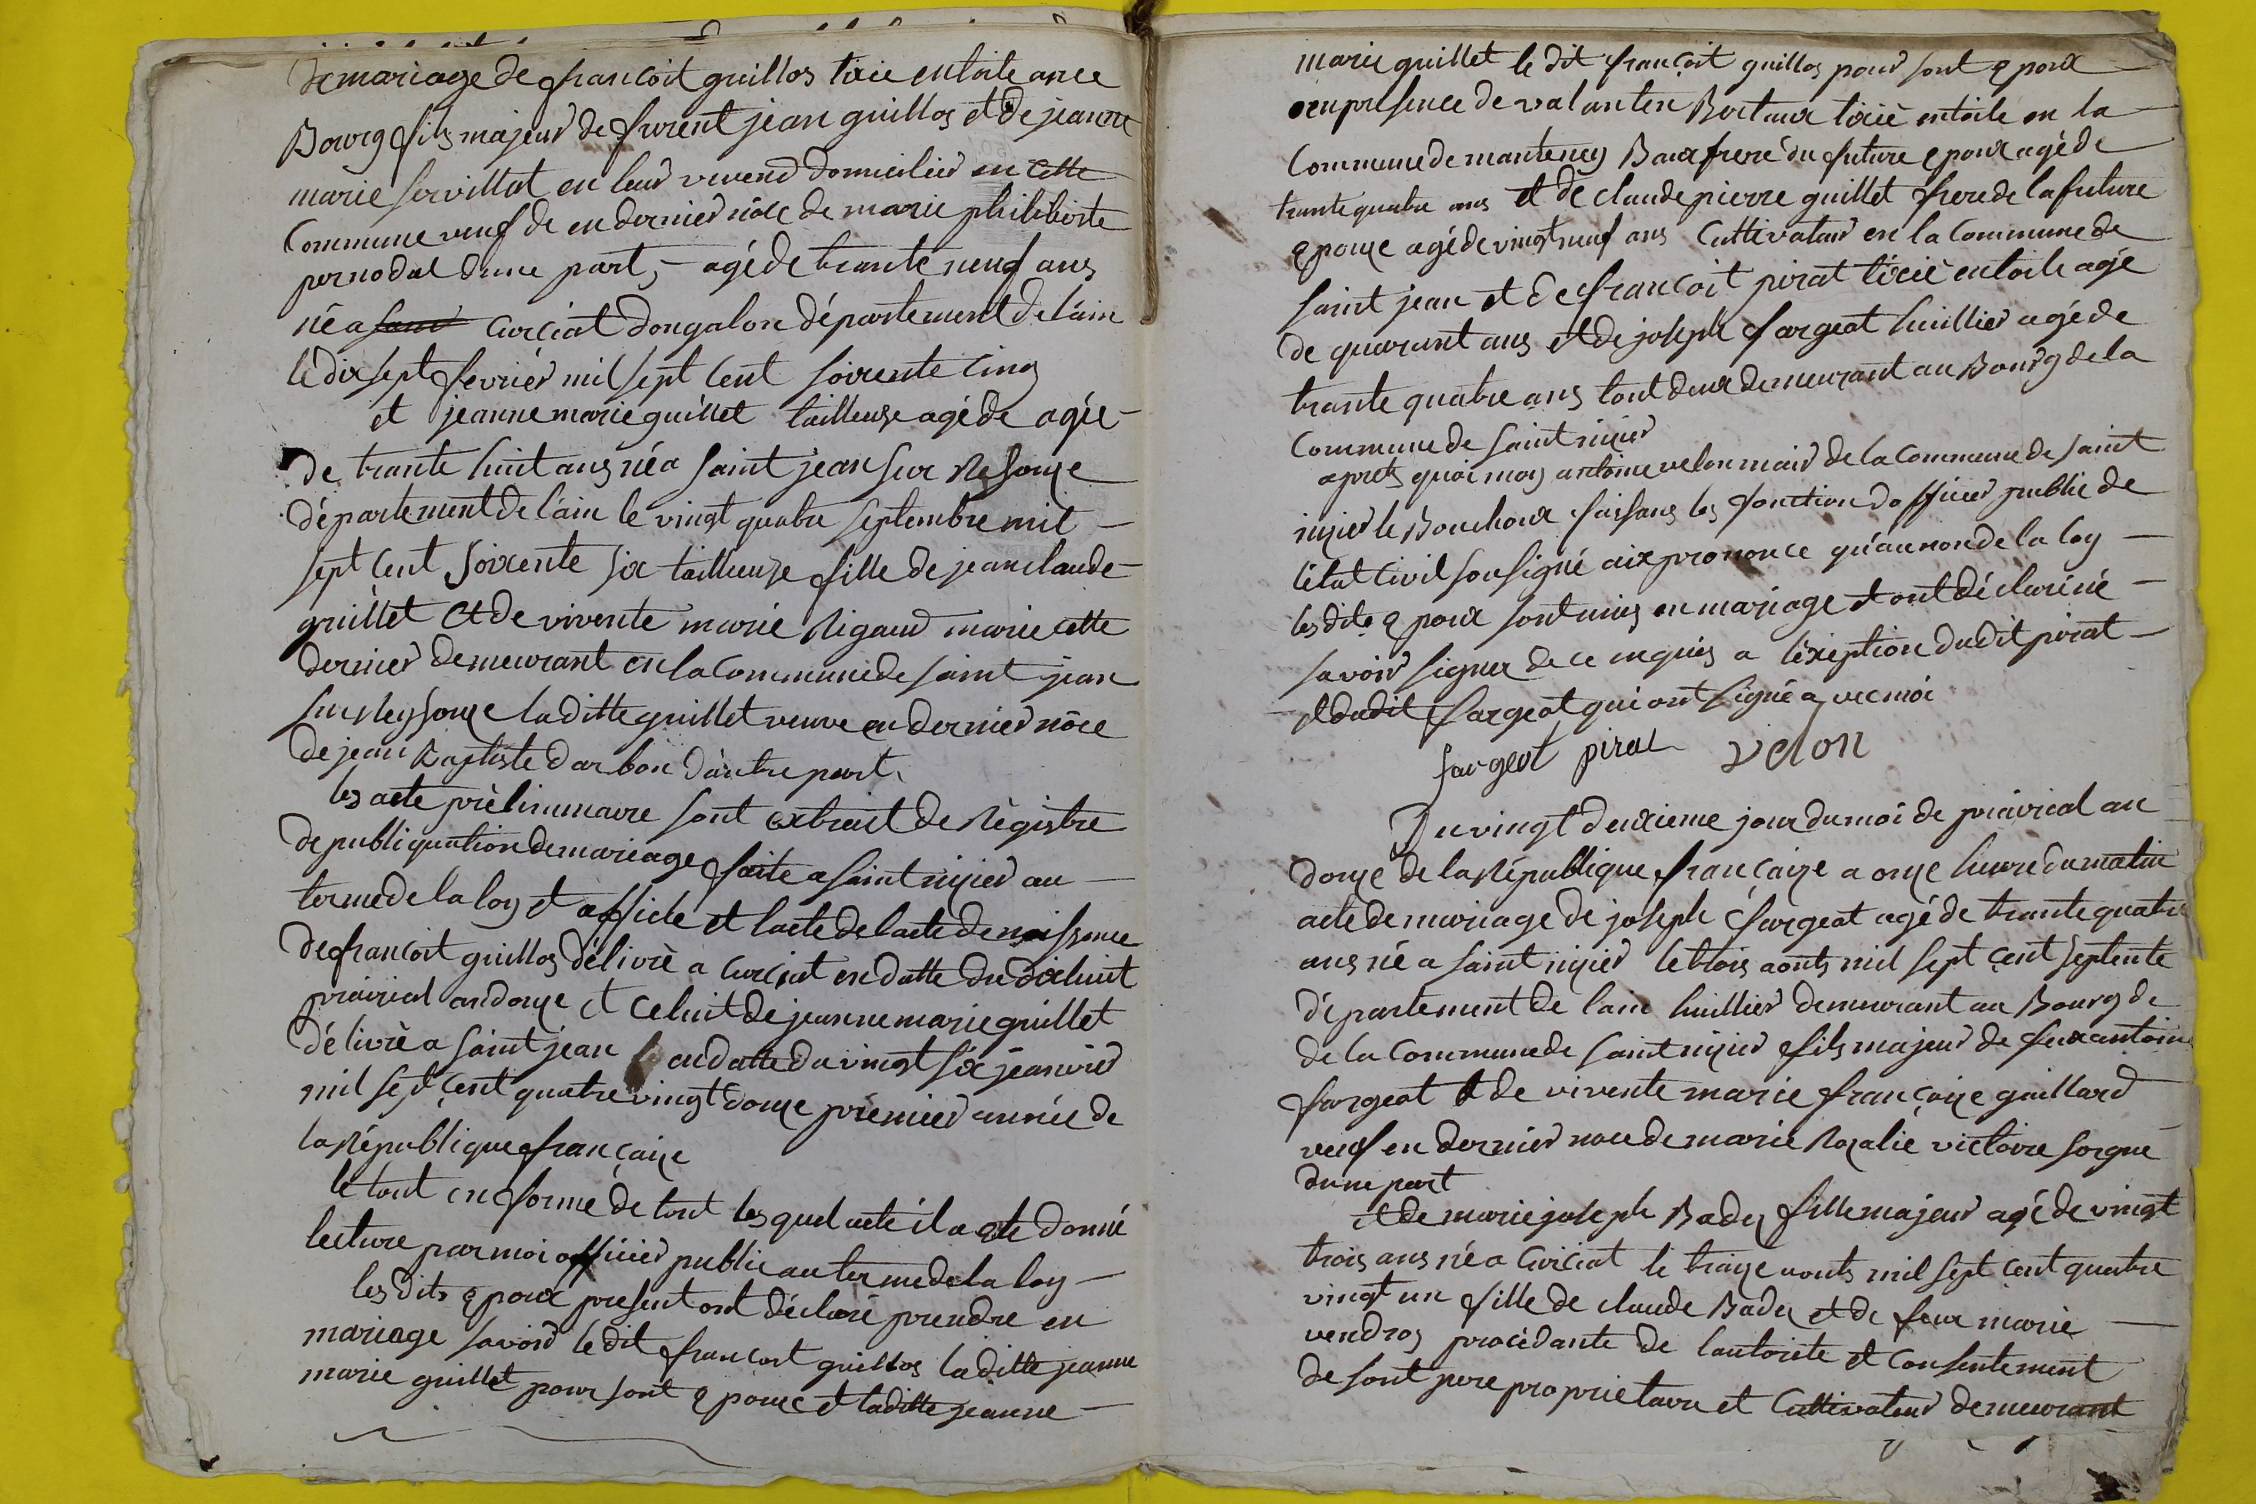 de mariage de francoit guillos tixié en toile au ce
Bourg fils majeur de furent jean guillos et de jeanne
marie servillat en leur vivend domicilier en cette
Commune veuf de en dernier nôce de marie philiberte
pernodat d'une part, – agé de trante neuf ans
né a Curciat dongalon département de l'ain
le dix sept fevrier mil sept cent soixente cinq
et jeanne marie guillet tailleuze agé de agée –
de trante huit ans né a saint jean sur Resouze
département de l'ain le vingt quatre septembre mil –
sept cent soixente six tailleuze fille de jean claude –
guillet et de vivente marie Rigaud marie cette
dernier demeurant en la Commune de saint jean
sur Reysouze la ditte guillet veuve en dernier nôce
de jean Baptiste darbon d'autre part.
les acte prèliminaire sont extrait de Régistre
de publiquation de mariage faite a saint nizier au –
terme de la loy et affiche et l'acte de l'acte de naissence
de francoit guillos délivré a Curciat en datte du dixhuit
prairial an douze et celuit de jeanne marie guillet
délivrè a saint jean en datte du vingt six jeanvier
mil sept cent quatre vingt douze premier année de
la République françaize
le tout en forme de tout les quel acte il a ete donné
lecture par moi officier public au terme de la loy –
les dits epoux present ont déclaré prendre en
mariage savoir le dit francoit guillos la ditte jeanne
marie guillet pour sont epouze et la ditte jeanne –
marie guillet le dit françoit guillos pour sont epoux –
en presence de valanten Bertaux tixié en toile en la –
Commune de manteney Baux frere du future epoux agé de
trante quatre ans et de claude pierre guillet frere de la future
epouze agé de vingt neuf ans Cultivateur en la Commune de
saint jean et de francoit pirat tixié en toile agé
de quarant ans et de joseph fargeot huillier agé de
trante quatre ans tout deux demeurant au Bourg de la
Commune de saint nizier
aprets quoi moy antoine velon mair de la Commune de saint
nizier le Bouchoux faisans les fonction d'officier public de
l'état Civil sousigné aix prononce qu'au nom de la loy –
les dits epoux sont unis en mariage et ont déclaré né –
savoir signer de ce enquis a l'exeption du dit pirat –
et du dit fargeot qui ont signé avec moi
fargeot pirat velon
Du vingt deuxieme jour du moi de prairial an
douze de la République françaize a onze heure du matin
acte de mariage de joseph fargeot agé de trante quatre
ans né a saint nizier le trois aouts mil sept cent septente
département de l'ain huillier demeurant au Bourg de
de la Commune de saint nizier fils majeur de feux antoine
fargeot et de vivente marie françoize gaillard
veuf en dernier noce de marie Rozalie victoire sorgue
d'une part
et de marie joseph Badez fille majeur agé de vingt
trois ans né a Curciat le traize aouts mil sept cent quatre
vingt un fille de claude Badez et de feux marie –
vendros procédante de l'autorite et Consentement
de sont pere proprietaire et Cultivateur demeurant